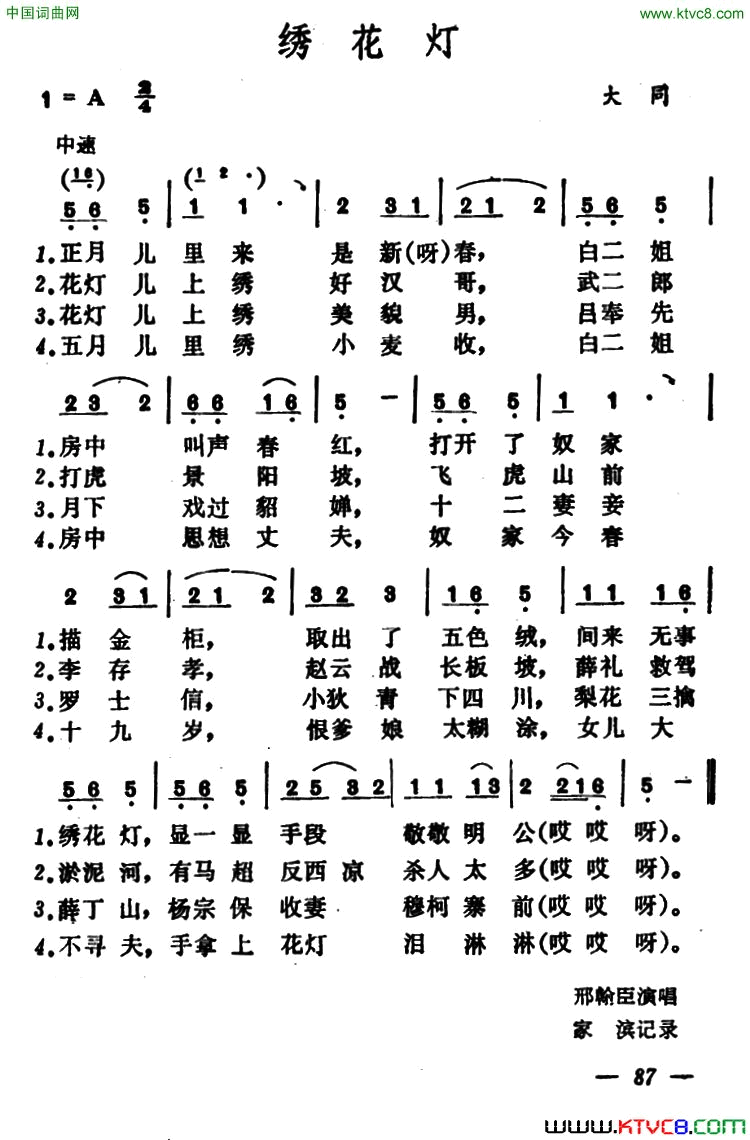 中国词曲网
www.ktvc8.com
绣花灯
1=A 2/4
大同
中速
(16) (1 2 ·)
5 6 5 | 1 1 · | 2 3 1 | 2 1 2 | 5 6 5 |
1.正月儿里来是新(呀)春，白二姐
2.花灯儿上绣好汉哥，武二郎
3.花灯儿上绣美貌男，吕奉先
4.五月儿里绣小麦收，白二姐
2 3 2 | 6 6 1 6 | 5 － | 5 6 5 | 1 1 · |
1.房中叫声春红，打开了奴家
2.打虎景阳坡，飞虎山前
3.月下戏过貂婵，十二妻妾
4.房中思想丈夫，奴家今春
2 3 1 | 2 1 2 | 3 3 2 3 | 1 6 5 | 1 1 1 6 |
1.描金柜，取出了五色绒，间来无事
2.李存孝，赵云战长板坡，薛礼救驾
3.罗士信，小狄青下四川，梨花三擒
4.十九岁，恨爹娘太糊涂，女儿大
5 6 5 | 5 6 5 | 2 5 3 2 | 1 1 1 3 | 2 2 1 6 | 5 － ‖
1.绣花灯，显一显手段敬敬明公(哎哎呀)。
2.淤泥河，有马超反西凉杀人太多(哎哎呀)。
3.薛丁山，杨宗保收妻穆柯寨前(哎哎呀)。
4.不寻夫，手拿上花灯泪淋淋(哎哎呀)。
邢翰臣演唱
家滨记录
— 87 —
www.KTVC8.com